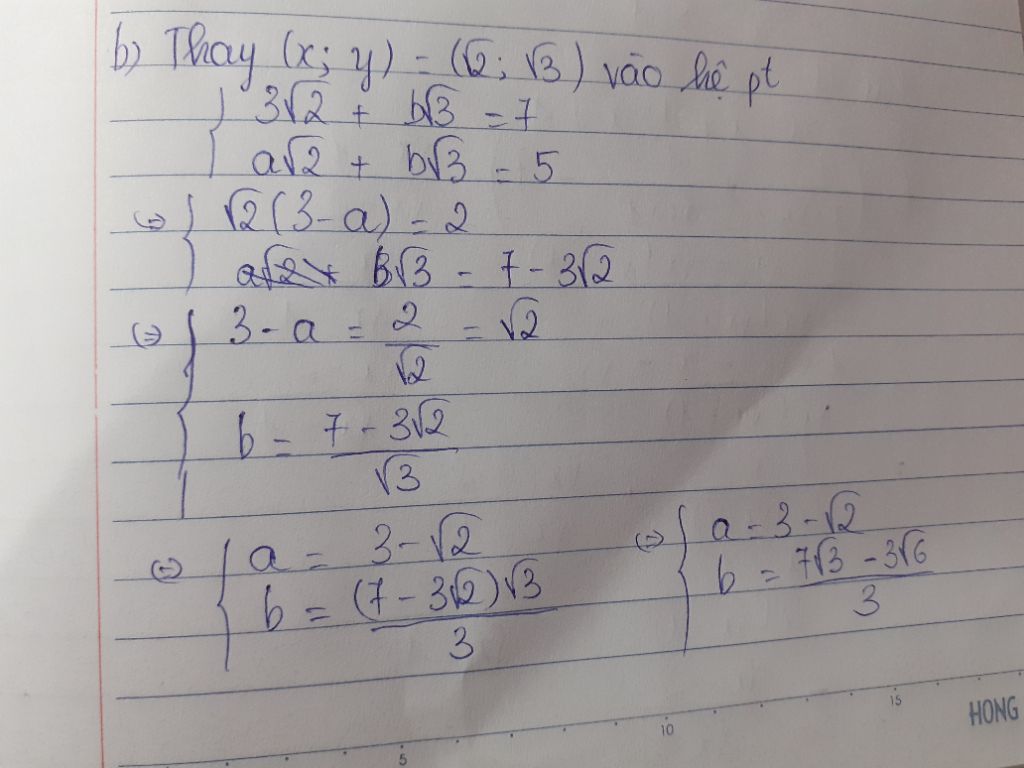 b) Thay (x; y) = (√2; √3) vào hệ pt
{ 3√2 + b√3 = 7
a√2 + b√3 = 5
⇔ { √2(3 - a) = 2
a√2 + b√3 = 7 - 3√2
⇔ { 3 - a = 2/√2 = √2
b = (7 - 3√2)/√3
⇔ { a = 3 - √2
b = (7 - 3√2)√3/3
⇔ { a = 3 - √2
b = (7√3 - 3√6)/3
5 10 15
HONG